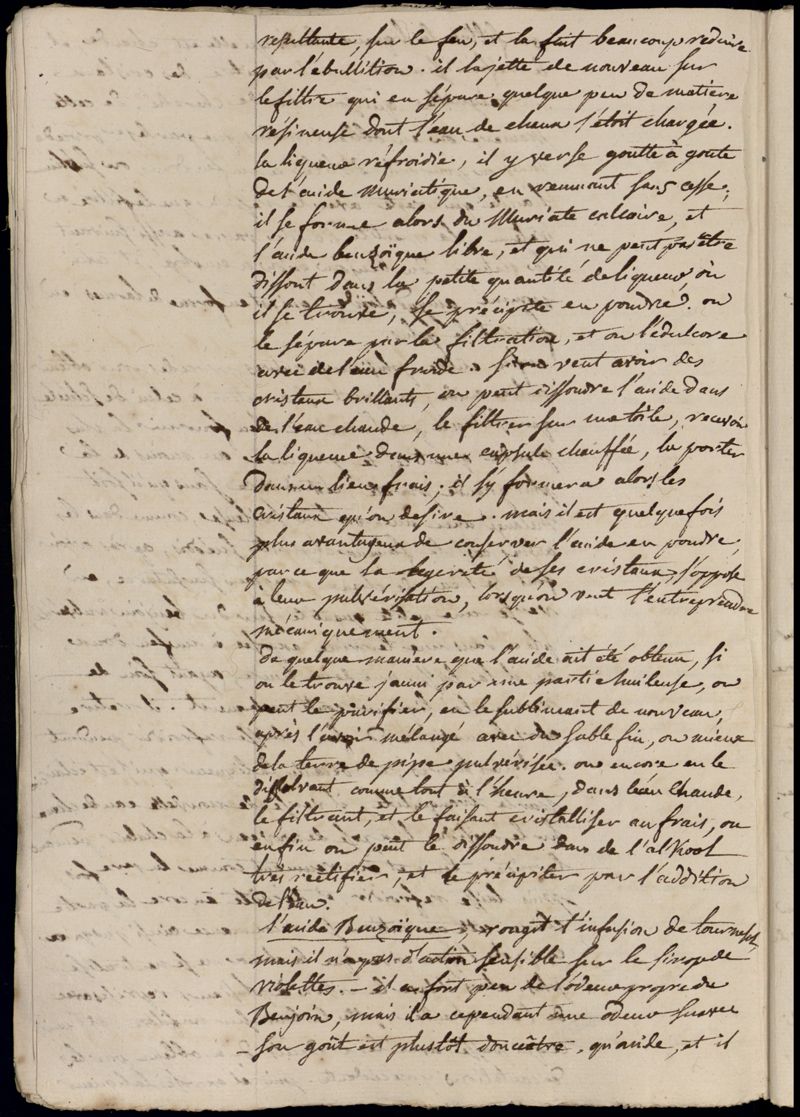 resultante, sur le feu, et la fait beaucoup reduire
par l'ébullition. il la jette de nouveau sur
le filtre qui en sépare quelque peu de matiere
résineuse dont l'eau de chaux s'étoit chargée.
la liqueur réfroidie, il y verse goutte à goute
de l'acide muriatique, en remuant sans cesse;
il se forme alors du Muriate calcaire, et
l'acide benzoïque libre, et qui ne peut pas être
dissout dans la petite quantité de liqueur où
il se trouve, se précipite en poudre. on
le sépare par la filtration, et on l'édulcore
avec de l'eau froide. si on veut avoir des
cristaux brillants, on peut dissoudre l'acide dans
de l'eau chaude, le filtrer sur une toile, recevoir
la liqueur dans une capsule chauffée, la porter
dans un lieu frais, il s'y formera alors les
cristaux qu'on desire. mais il est quelquefois
plus avantageux de conserver l'acide en poudre,
par ce que la legereté de ses cristaux s'oppose
à leur pulvérisation, lorsqu'on veut l'entreprendre
mécaniquement.
de quelque maniere que l'acide ait été obtenu, si
on le trouve jauni par une partie huileuse, on
peut le purifier, en le sublimant de nouveau,
après l'avoir mélangé avec du sable fin, ou mieux
de la terre de pipe pulvérisée. ou encore en le
dissolvant comme tout à l'heure, dans l'eau chaude,
le filtrant, et le faisant cristalliser au frais, ou
enfin on peut le dissoudre dans de l'alkool
très rectifier, et le précipiter par l'addition
de l'eau.
l'acide Benzoïque, rougit l'infusion de tournesol,
mais il n'a pas d'action sensible sur le sirop de
violettes. - il a fort peu de l'odeur propre du
Benjoin, mais il a cependant une odeur suave
son goût est plustôt douceâtre, qu'acide, et il